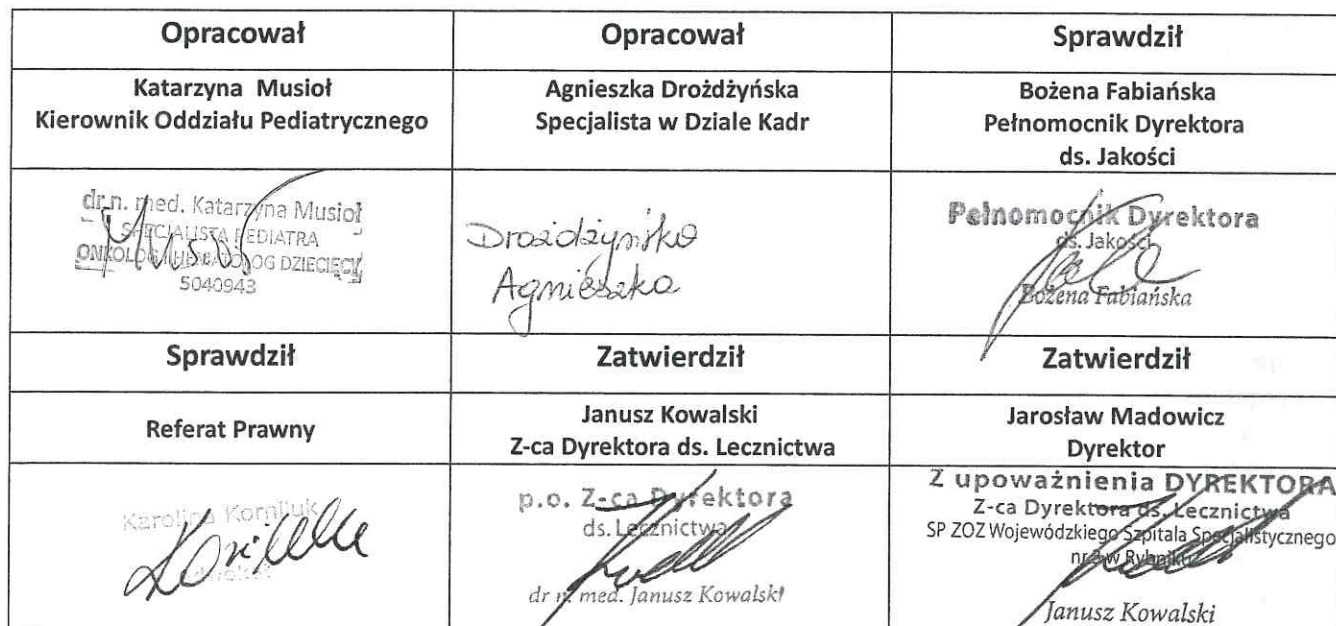 Opracował
Opracował
Sprawdził
Katarzyna Musioł
Kierownik Oddziału Pediatrycznego
Agnieszka Drożdżyńska
Specjalista w Dziale Kadr
Bożena Fabiańska
Pełnomocnik Dyrektora
ds. Jakości
dr n. med. Katarzyna Musioł
SPECJALISTA PEDIATRA
ONKOLOG I HEMATOLOG DZIECIĘCY
5040943
Musioł
Drożdżyńska
Agnieszka
Pełnomocnik Dyrektora
ds. Jakości
Bożena Fabiańska
Sprawdził
Zatwierdził
Zatwierdził
Referat Prawny
Janusz Kowalski
Z-ca Dyrektora ds. Lecznictwa
Jarosław Madowicz
Dyrektor
Karolina Korniluk
adwokat
p.o. Z-ca Dyrektora
ds. Lecznictwa
dr n. med. Janusz Kowalski
Z upoważnienia DYREKTORA
Z-ca Dyrektora ds. Lecznictwa
SP ZOZ Wojewódzkiego Szpitala Specjalistycznego
nr 3 w Rybniku
Janusz Kowalski